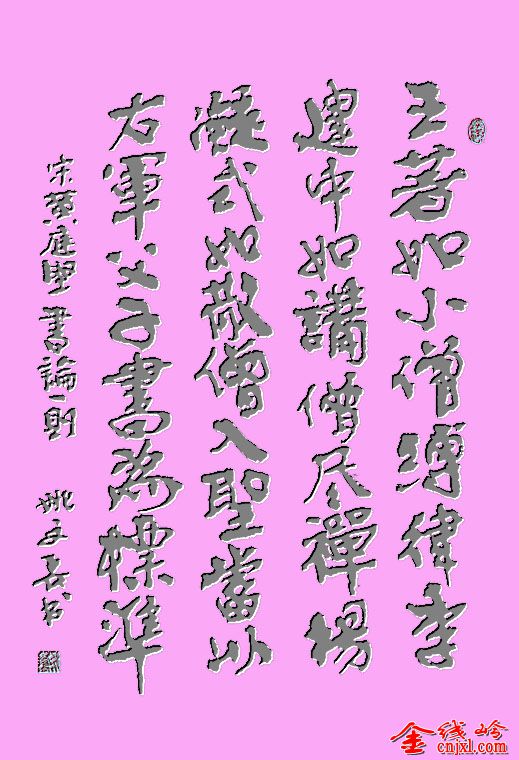 王著如小僧縛律李
建中如講僧尽禪楊
凝式如散僧入聖當以
右軍父子書為標準
宋黄庭堅書論一則
姚文長书
金线岭
cnjxl.com